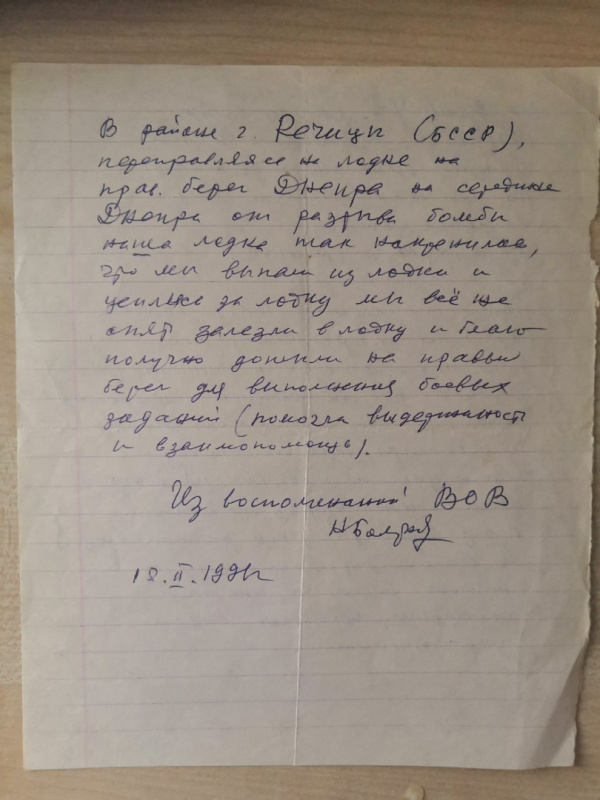 В районе г. Речицы (БССР),
переправляясь на лодке на
прав. берег Днепра на середине
Днепра от разрыва бомбы
наша лодка так накренилась,
что мы выпали из лодки и
цепляясь за лодку мы всё же
опят залезли в лодку и благо
получно дошли на правый
берег для выполнения боевых
заданий (помогла выдержаность
и взаимопомощь).
Из воспоминаний ВОВ
18.II.1991г